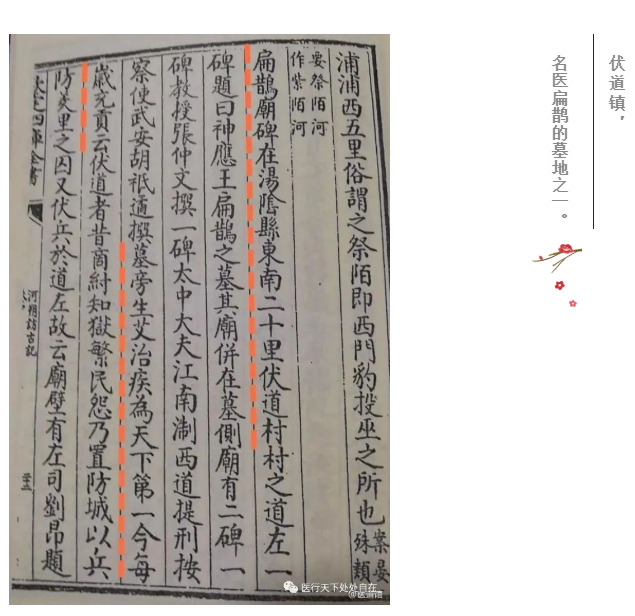 伏道镇，
名医扁鹊的墓地之一。
浦浦西五里俗謂之祭陌即西門豹投巫之所也案晏
殊類
要祭陌河
作紫陌河
扁鵲廟碑在湯陰縣東南二十里伏道村村之道左一
碑題曰神應王扁鵲之墓其廟併在墓側廟有二碑一
碑教授張仲文撰一碑太中大夫江南淛西道提刑按
察使武安胡祇遹撰墓旁生艾治疾為天下第一今每
歲充貢云伏道者昔商紂知獄繁民怨乃置防城以兵
防羑里之囚又伏兵於道左故云廟壁有左司劉昂題
欽定四庫全書
河朔訪古記
医行天下处处自在
@医道语